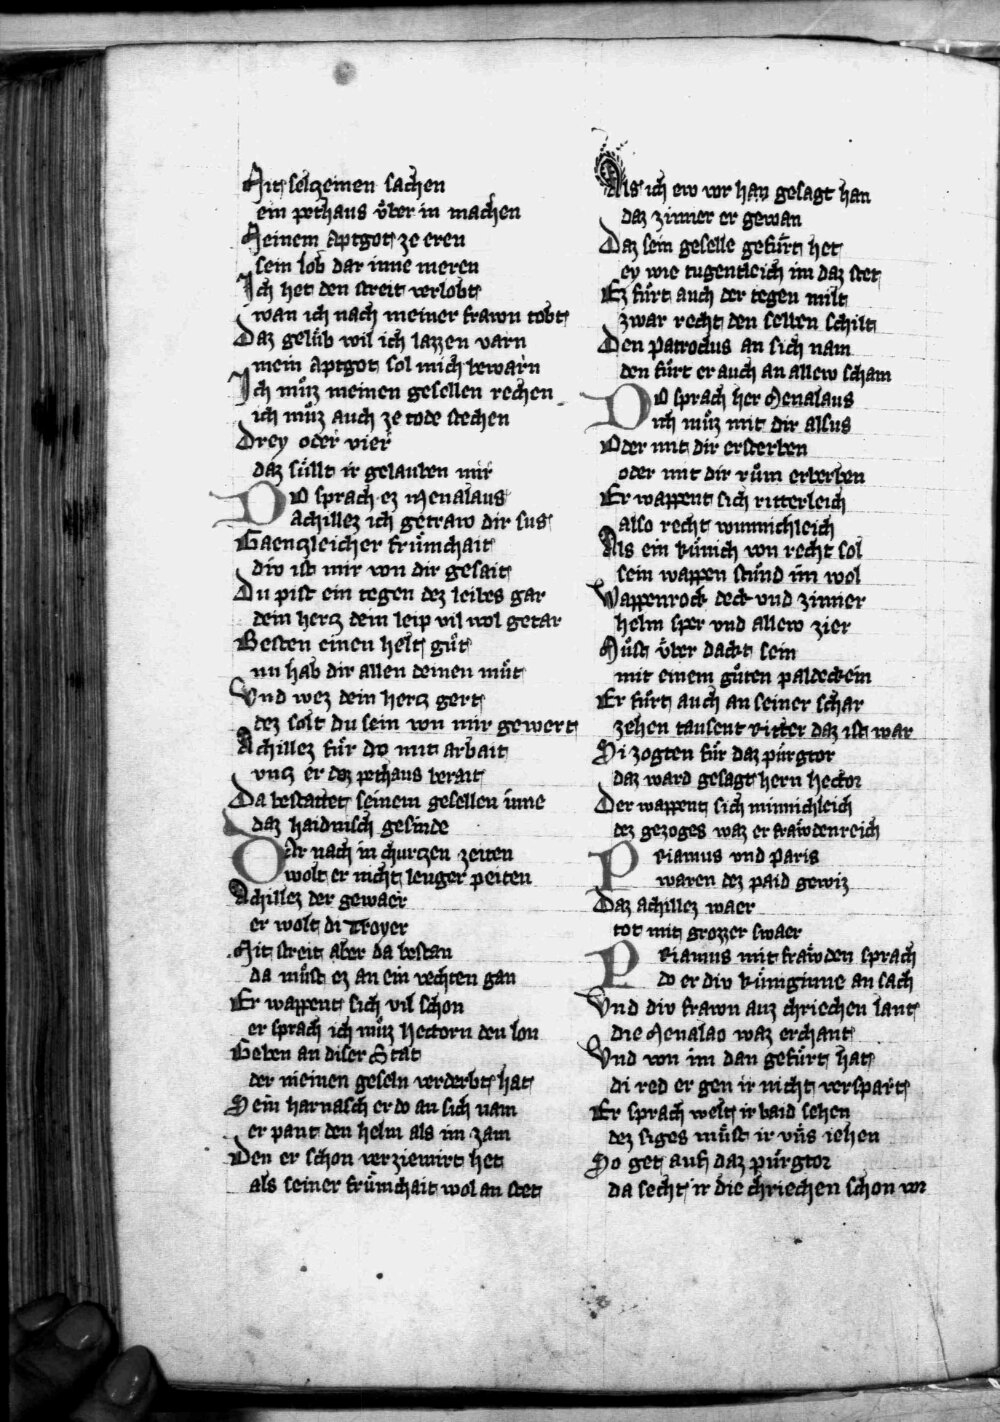 Mit selczeinen sachen
ein pethaus vͤber in machen
Meinem aptgot ze eren
sein lob dar inne meren
Ich het den streit verlobt
wan ich nach meiner frawn tobt
Daz gelüb wil ich lazzen varn
mein aptgot sol mich bewarn
Ich muͦz meinen gesellen rechen
ich muͦz auch ze tode stechen
Drey oder vier
daz süllt ir gelauben mir
Do sprach ez Menalaus
Achillez ich getraw dir sus
Gaenczleicher früͤmchait
div ist mir von dir gesait
Du pist ein tegen dez leibes gar
dein hercz dein leip vil wol getar
Besten einen helt guͦt
nu hab dir allen deinen muͦt
Vnd wez dein hercz gert
dez solt du sein von mir gewert
Achillez fuͦr do mit arbait
vncz er daz pethaus berait
Da bestattet seinem gesellen inne
daz haidnisch gesinde
Dar nach in churczen zeiten
wolt er nicht lenger peiten
Achillez der gewaer
er wolt di Troyer
Mit streit aber da bestan
da muͦst ez an ein vechten gan
Er wappent sich vil schon
er sprach ich muͦz Hectorn den lon
Geben an diser Stat
der meinen geseln verderbt hat
Sein harnasch er do an sich nam
er pant den helm als im zam
Den er schon verziemirt het
als seiner früͤmchait wol an stet
Als ich ew vor han gesagt han
daz zimer er gewan
Daz sein geselle gefüͤrt het
ey wie tugentleich im daz stet
Ez fuͤrt auch der tegen milt
zwar recht den selben schilt
Den Patroclus an sich nam
den fuͤrt er auch an allew scham
Do sprach her Menalaus
ich muͦz mit dir alsus
Oder mit dir ersterben
oder mit dir ruͦm erberben
Er wappent sich ritterleich
also recht wunnichleich
Als ein küͤnich von recht sol
sein wappen stuͦnd im wol
Wappenrock deck vnd zimer
helm sper vnd allew zier
Muͦst vͤber dackt sein
mit einem guͦten paldeckein
Er fuͤrt auch an seiner schar
zehen tausent Ritter daz ist war
Si zogten fuͤr daz puͤrgtor
daz ward gesagt hern Hector
Der wappent sich minnichleich
dez gezoges waz er fräwdenreich
Priamus vnd Paris
waren dez paid gewiz
Daz Achillez waer
tot mit grozzer swaer
Priamus mit fräwden sprach
do er div küͤniginne an sach
Vnd div frawn auz chriechen lant
die Menalao waz erchant
Vnd von im dan gefuͤrt hat
di red er gen ir nicht verspart
Er sprach welt ir baid sehen
dez siges muͤst ir vns iehen
So get auf daz puͤrgtor
da secht ir die chriechen schon vor